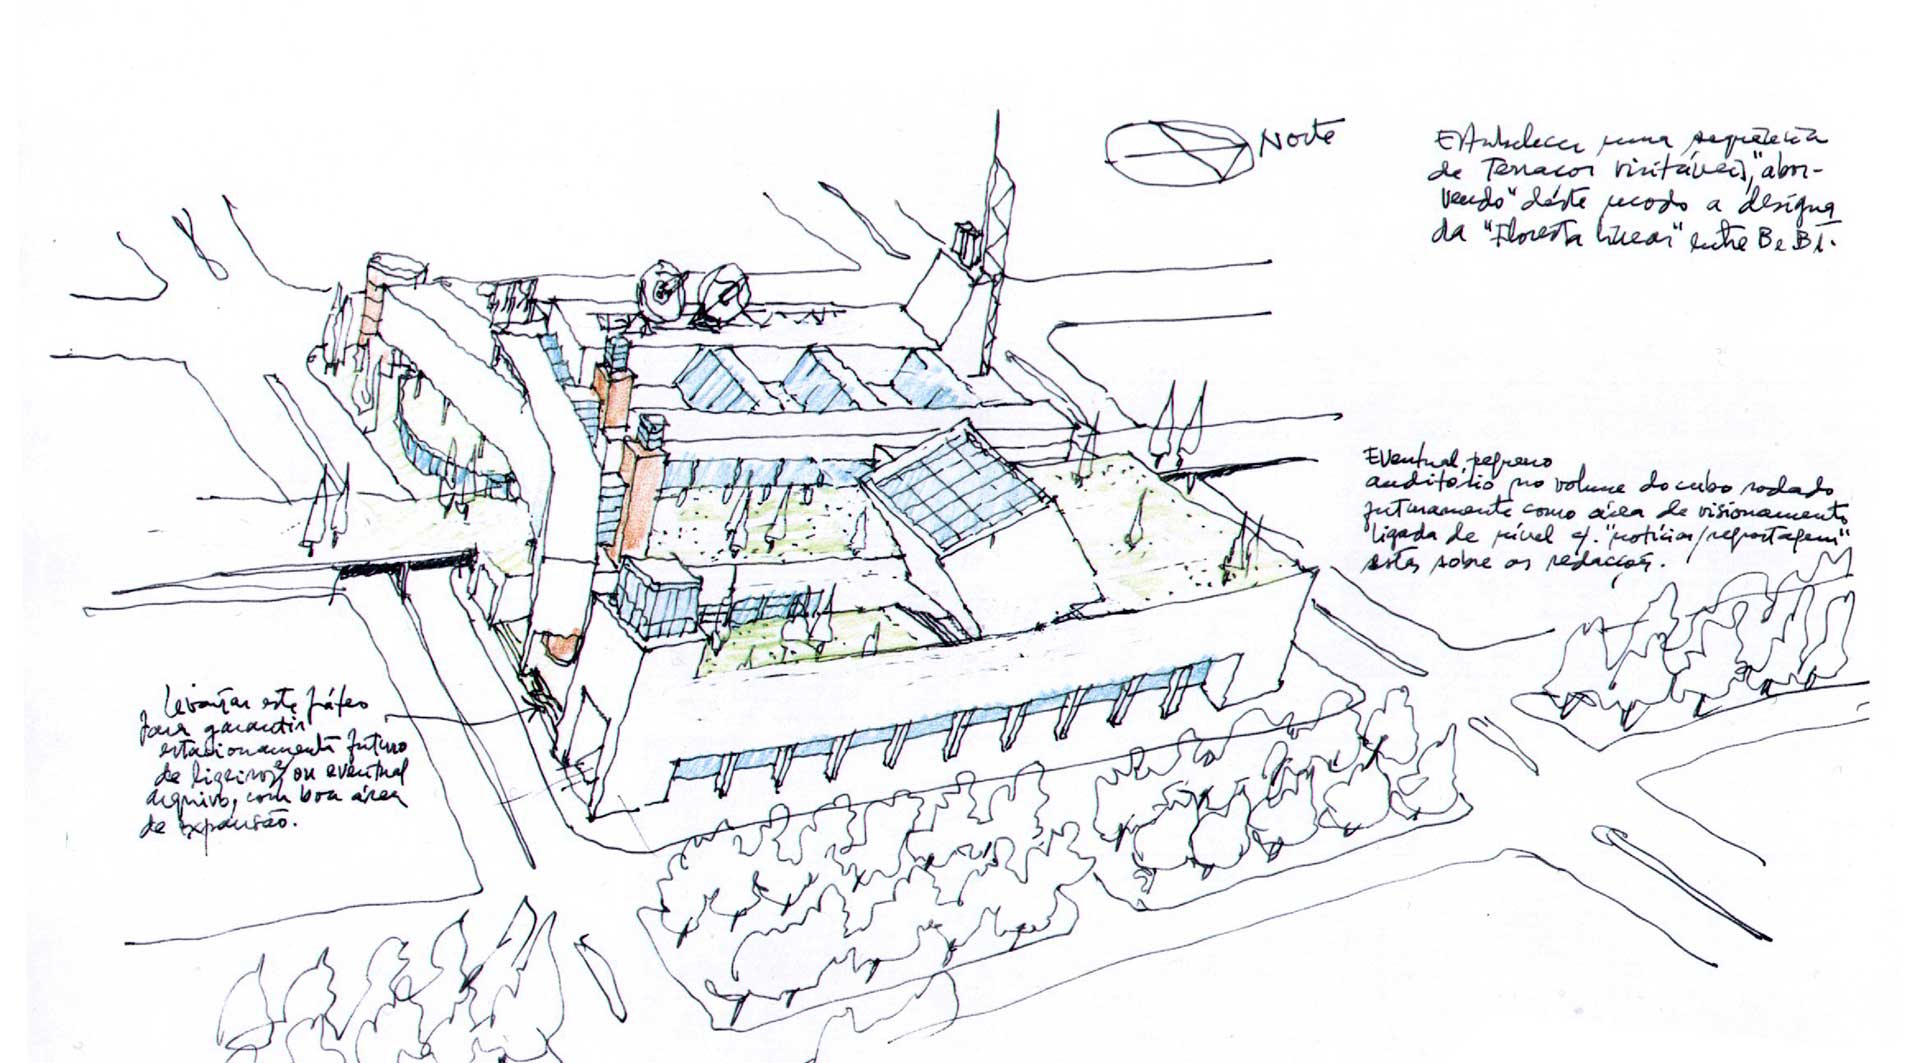 Norte
Estabelecer uma sequência
de Terraços visitáveis, "absor-
vendo" dêste modo a
da "Floresta linear" entre B e B1.
Eventual pequeno
auditório no volume do cubo rodado
futuramente como área de visionamento
ligada de nível c/. "notícias/reportagem"
estas sobre as redacções.
Levantar este
para garantir
estacionamento futuro
de ligeiros, ou eventual
arquivo, com boa área
de expansão.